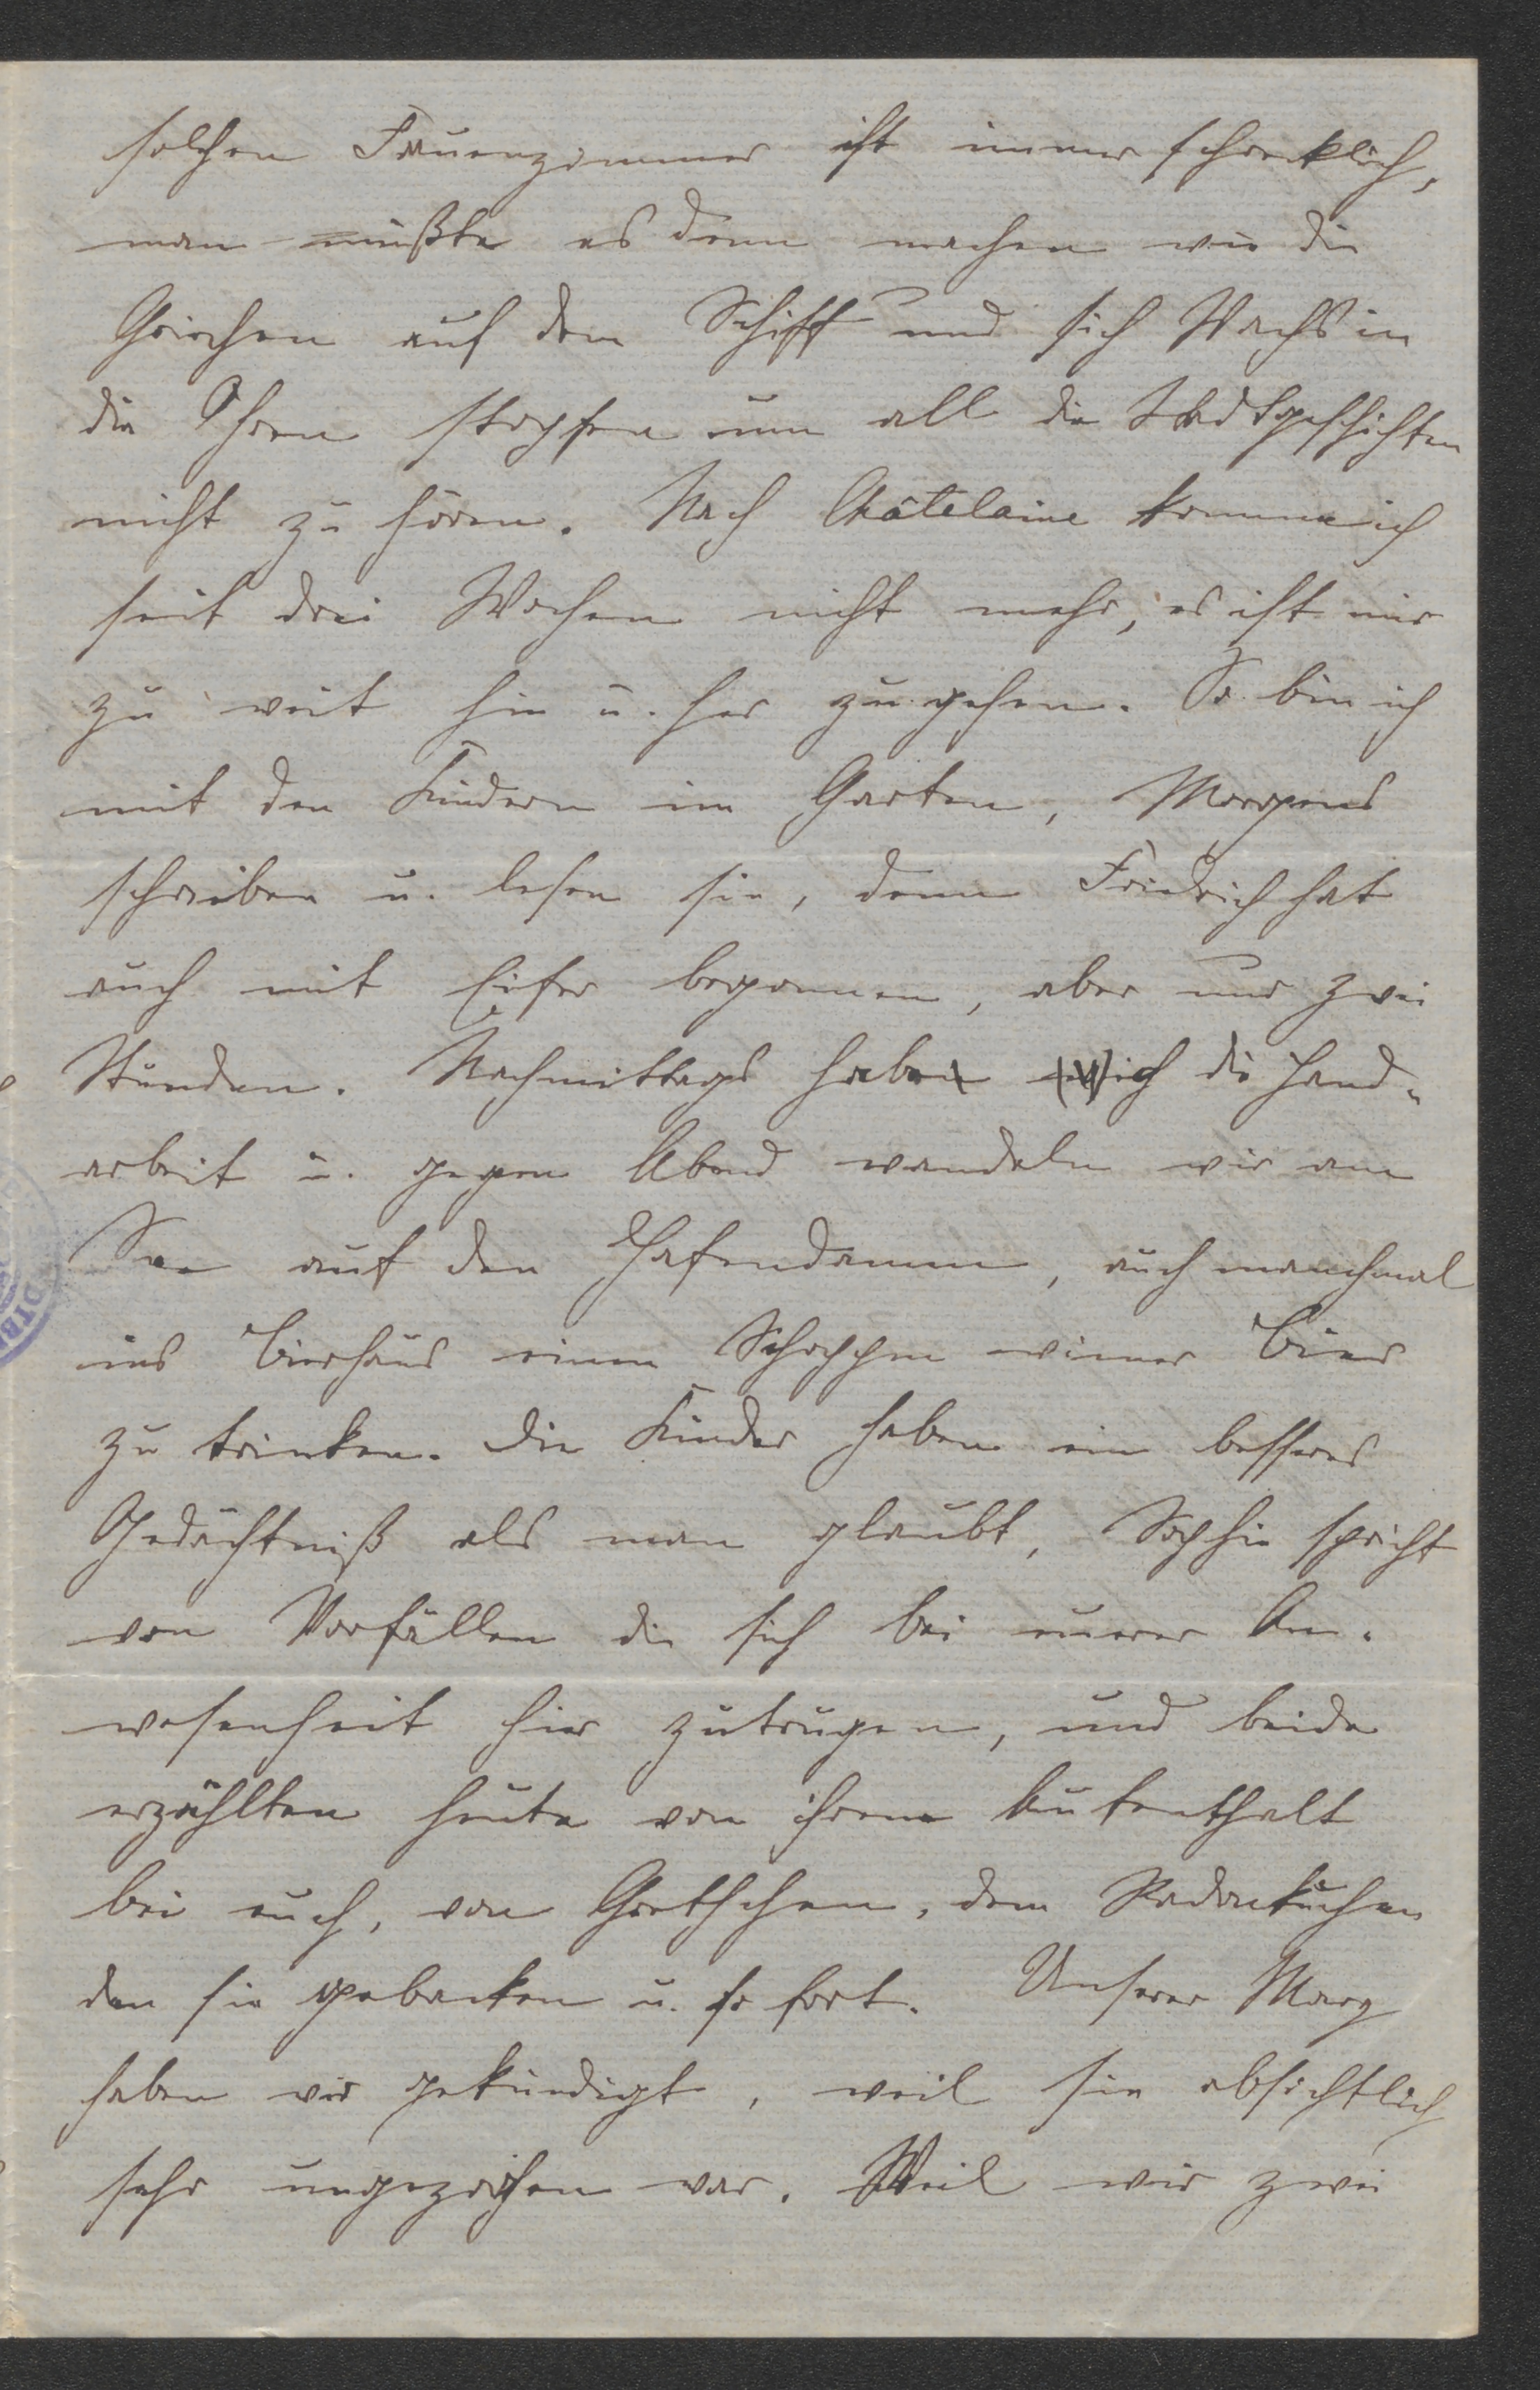 solchen Frauenzimmer ist immer schrecklich,
man müßte es denn machen wie die
Griechen auf dem Schiff und sich Wachs in
die Ohren stopfen um all die Stadtgeschichten
nicht zu hören. Nach Châtelaine komme ich
seit drei Wochen nicht mehr, es ist mir
zu weit hin u. her zu gehen. So bin ich
mit den Kindern im Garten, Morgens
schreiben u. lesen sie, denn Friedrich hat
auch mit Eifer begonnen, aber nur zwei
Stunden. Nachmittags habe ich die Hand-
arbeit u. gegen Abend wandeln wir am
See auf den Hafendamm, auch manchmal
ins Bierhaus einen Schoppen wiener Bier
zu trinken. Die Kinder haben ein besseres
Gedächtniß als man glaubt, Sophie spricht
von Vorfällen die sich bei eurer An-
wesenheit hier zutrugen, und beide
erzählten heute von ihrem Aufenthalt
bei euch, von Gretchen, dem Radonkuchen
den sie gebacken u. so fort. Unserer Mary
haben wir gekündigt, weil sie absichtlich
sehr ungezogen war. Weil wir zwei